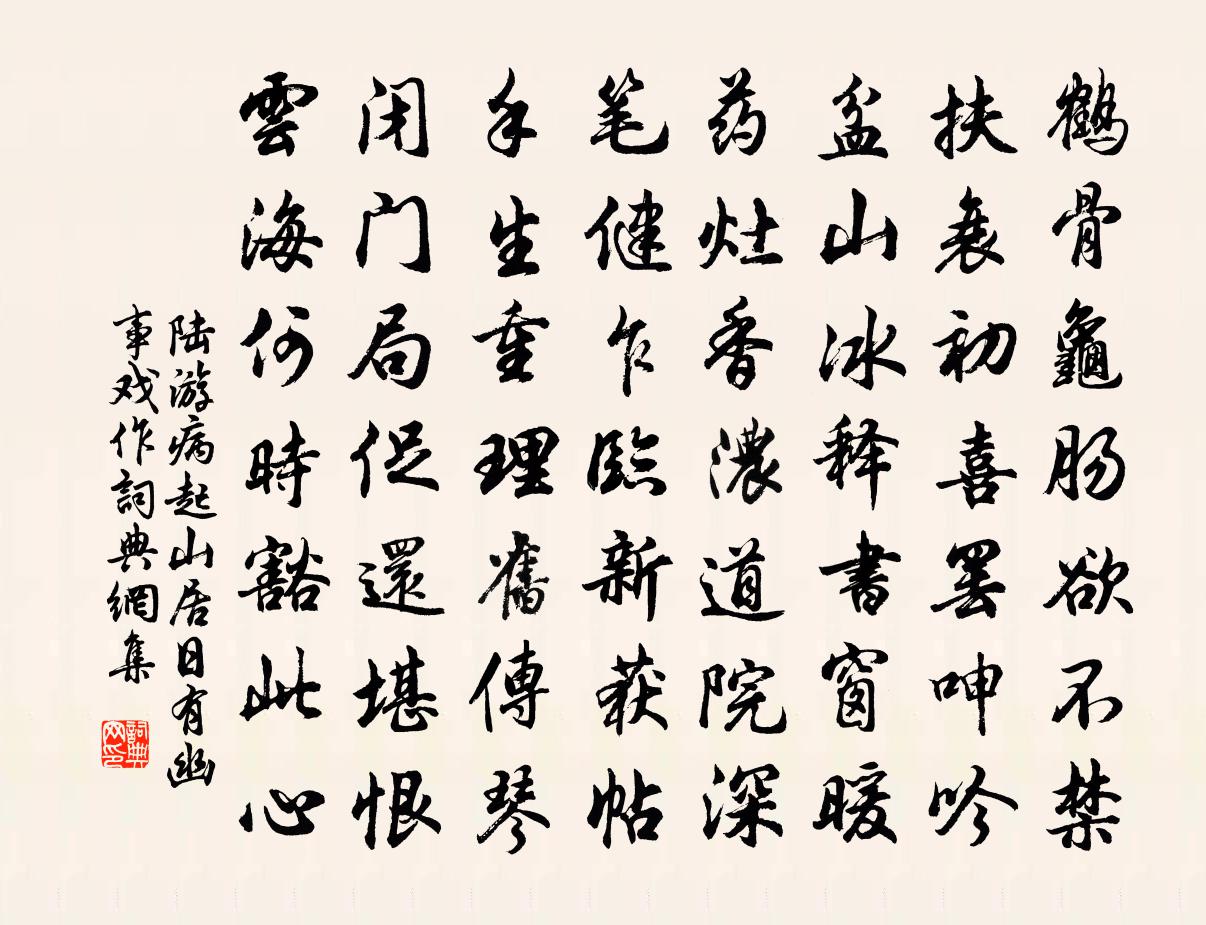 鹤骨龜肠欲不禁
扶衰初喜罢呻吟
盆山冰释書窗暖
药灶香濃道院深
笔健乍臨新获帖
手生重理舊傳琴
闭门局促還堪恨
雲海何時豁此心
陆游病起山居日有幽
事戏作詞典網集
詞典
网印